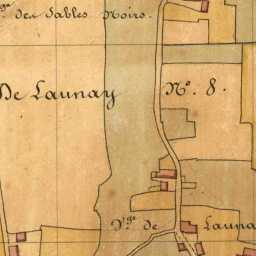 ge des Sables Noirs.
De Launay No. 8.
Vge de Launa